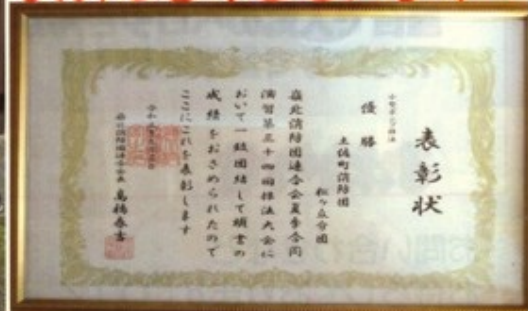 表彰状
小型ポンプ操法
優勝
土佐町消防団
松ヶ丘分団
嶺北消防団連合会夏季合同
演習第三十四回操法大会に
おいて一致団結して頭書の
成績をおさめられたので
ここにこれを表彰します
嶺北消防団連合会長